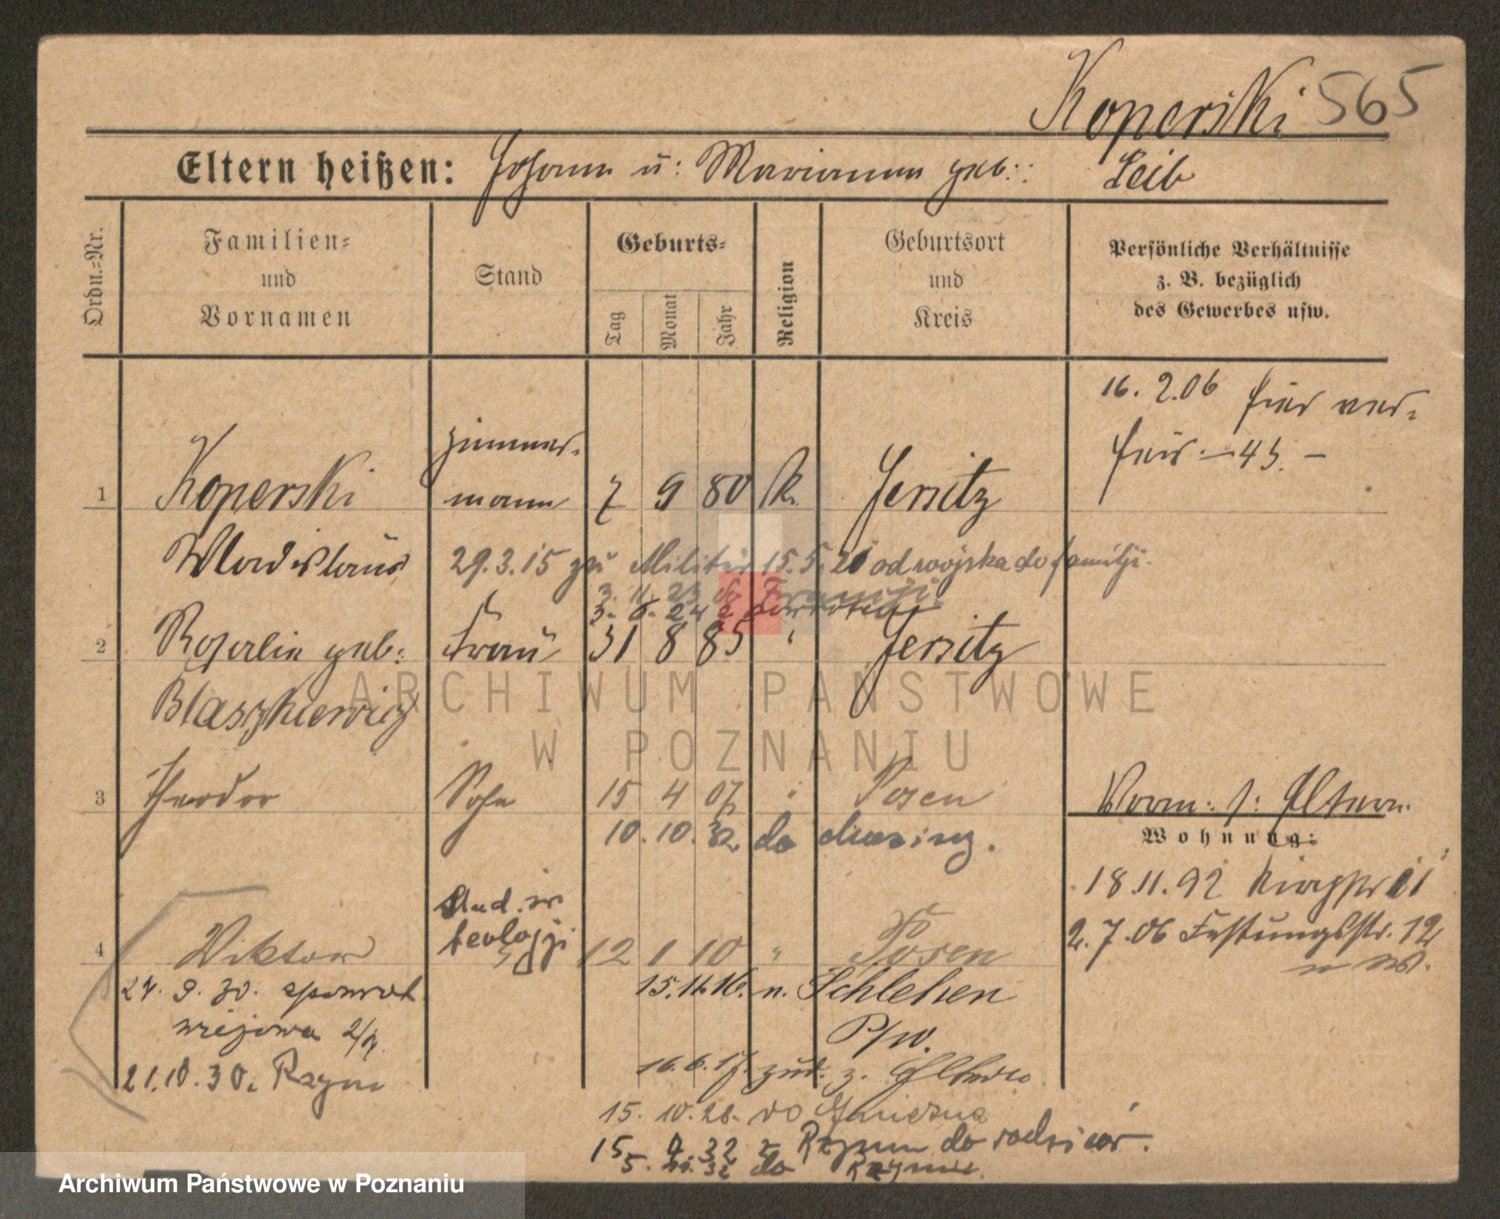 Koperski 565
Eltern heißen: Johann u: Marianna geb: Leib
Ordn.-Nr.
Familien-
und
Vornamen
Stand
Geburts-
Tag
Monat
Jahr
Religion
Geburtsort
und
Kreis
Persönliche Verhältnisse
z. B. bezüglich
des Gewerbes usw.
16. 2.06
Zimmer-
1 Koperski mann 7 9 80 k. Jersitz
Wladislaus 29.3.15 zu Militär 15.5.21 od wojska do familji.
3. 11. 23 do
3. 6. 24 z
2 Rosalie geb: Frau 31 8 85 " Jersitz
Blaszkiewicz
3 Theodor Sohn 15 4 07 " Posen
10. 10. 32 do
Vorm: s: Eltern.
Wohnung:
18.11.92
2. 7. 06 Festungsstr. 12
Stud. św
teologji
4 Viktor 12 1 10 " Posen
24. 9. 30.
15.11.16. n. Schlehen
21.10.30. Rzym
16.6.17. zur. z. Eltern
15. 10. 28. do Gniezna
15. 32 z Rzymu do rodziców.
5. 32 do Rzymu.
ARCHIWUM PAŃSTWOWE
W POZNANIU
Archiwum Państwowe w Poznaniu